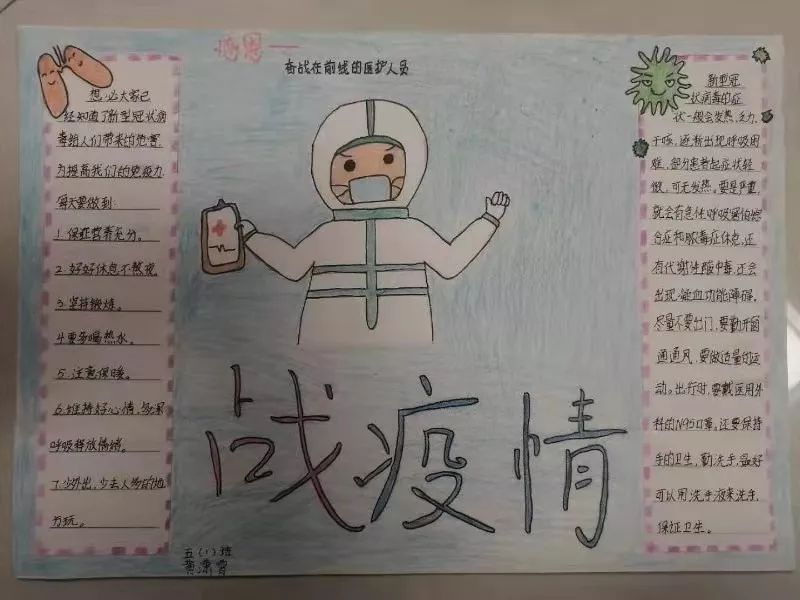 感恩——
奋战在前线的医护人员
想必大家已
经知道了新型冠状病
毒给人们带来的危害.
为提高我们的免疫力
每天要做到:
1.保证营养充分。
2.好好休息不熬夜
3.坚持锻炼。
4.要多喝热水。
5.注意保暖。
6.维持好心情,多深
呼吸释放情绪。
7.少外出,少去人多的地
方玩。
新型冠
状病毒的症
状一般会发热,乏力,
干咳,逐渐出现呼吸困
难,部分患者起症状轻
微,可无发热。要是严重,
就会有急性呼吸窘迫综
合症和脓毒症休克,还
有代谢性酸中毒,还会
出现凝血功能障碍.
尽量不要出门,要勤开窗
通通风,要做适量的运
动。出行时,要戴医用外
科的N95口罩。还要保持
手的卫生,勤洗手,最好
可以用洗手液来洗手,
保证卫生。
战疫情
五(1)班